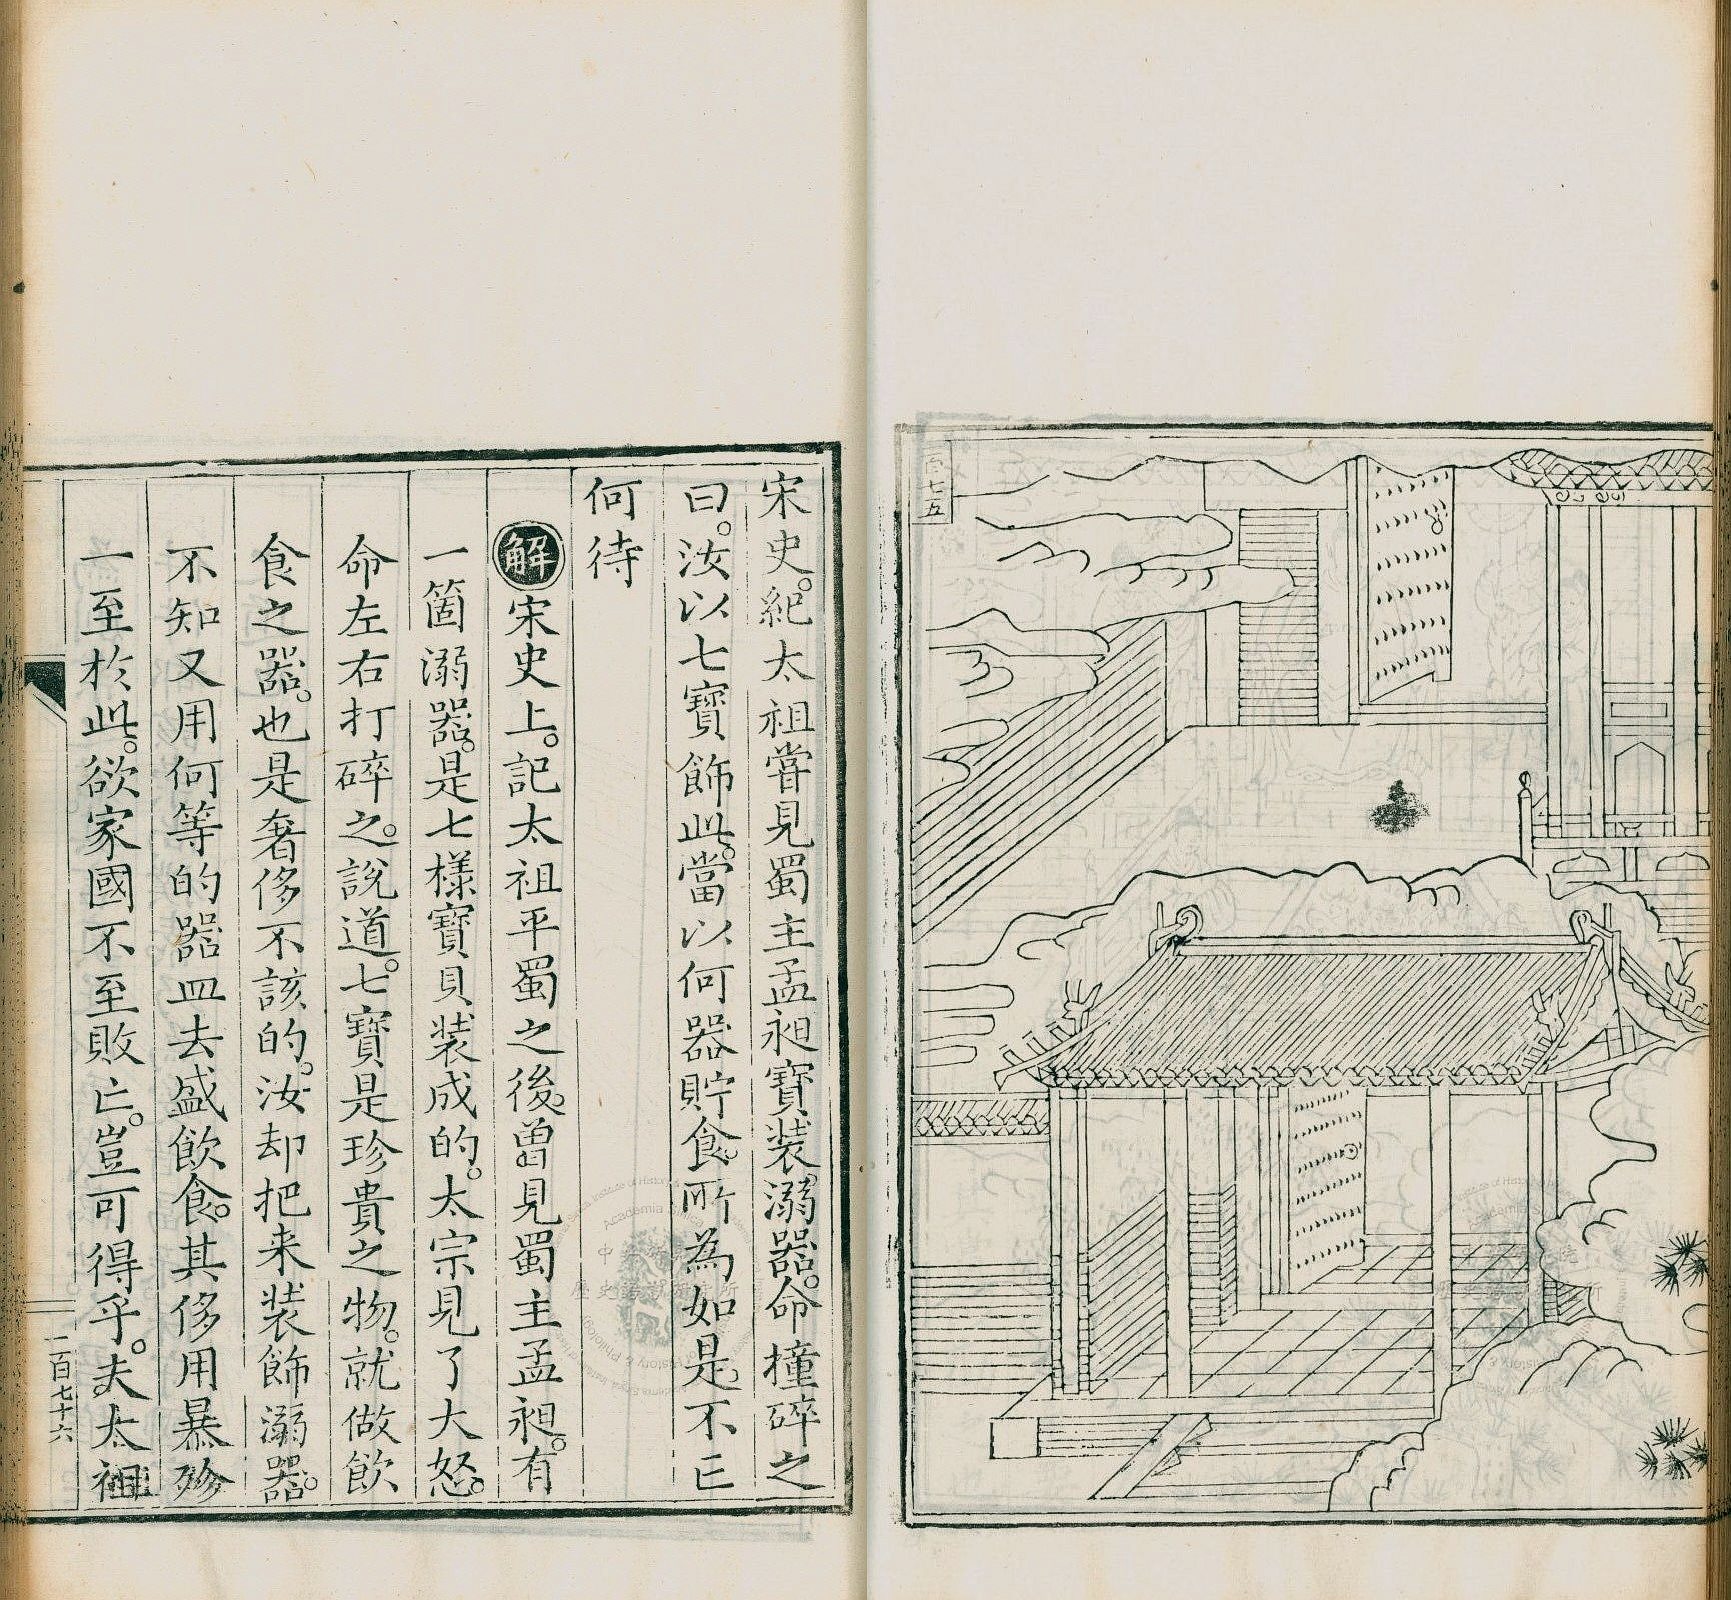 上七五
宋史。紀太祖嘗見蜀主孟昶寶裝。溺器。命撞碎之
曰。汝以七寶飾此。當以何器貯食。所為如是。不亡
何待
解宋史上。記太祖平蜀之後。曾見蜀主孟昶。有
一箇溺器。是七樣寶貝裝成的。太宗見了大怒。
命左右打碎之。說道。七寶是珍貴之物。就做飲
食之器。也是奢侈不該的。汝却把来裝飾溺器。
不知又用何等的器皿去盛飲食。其侈用暴殄
一至於此。欲家國不至敗亡。豈可得乎。夫太祖
二百七十六